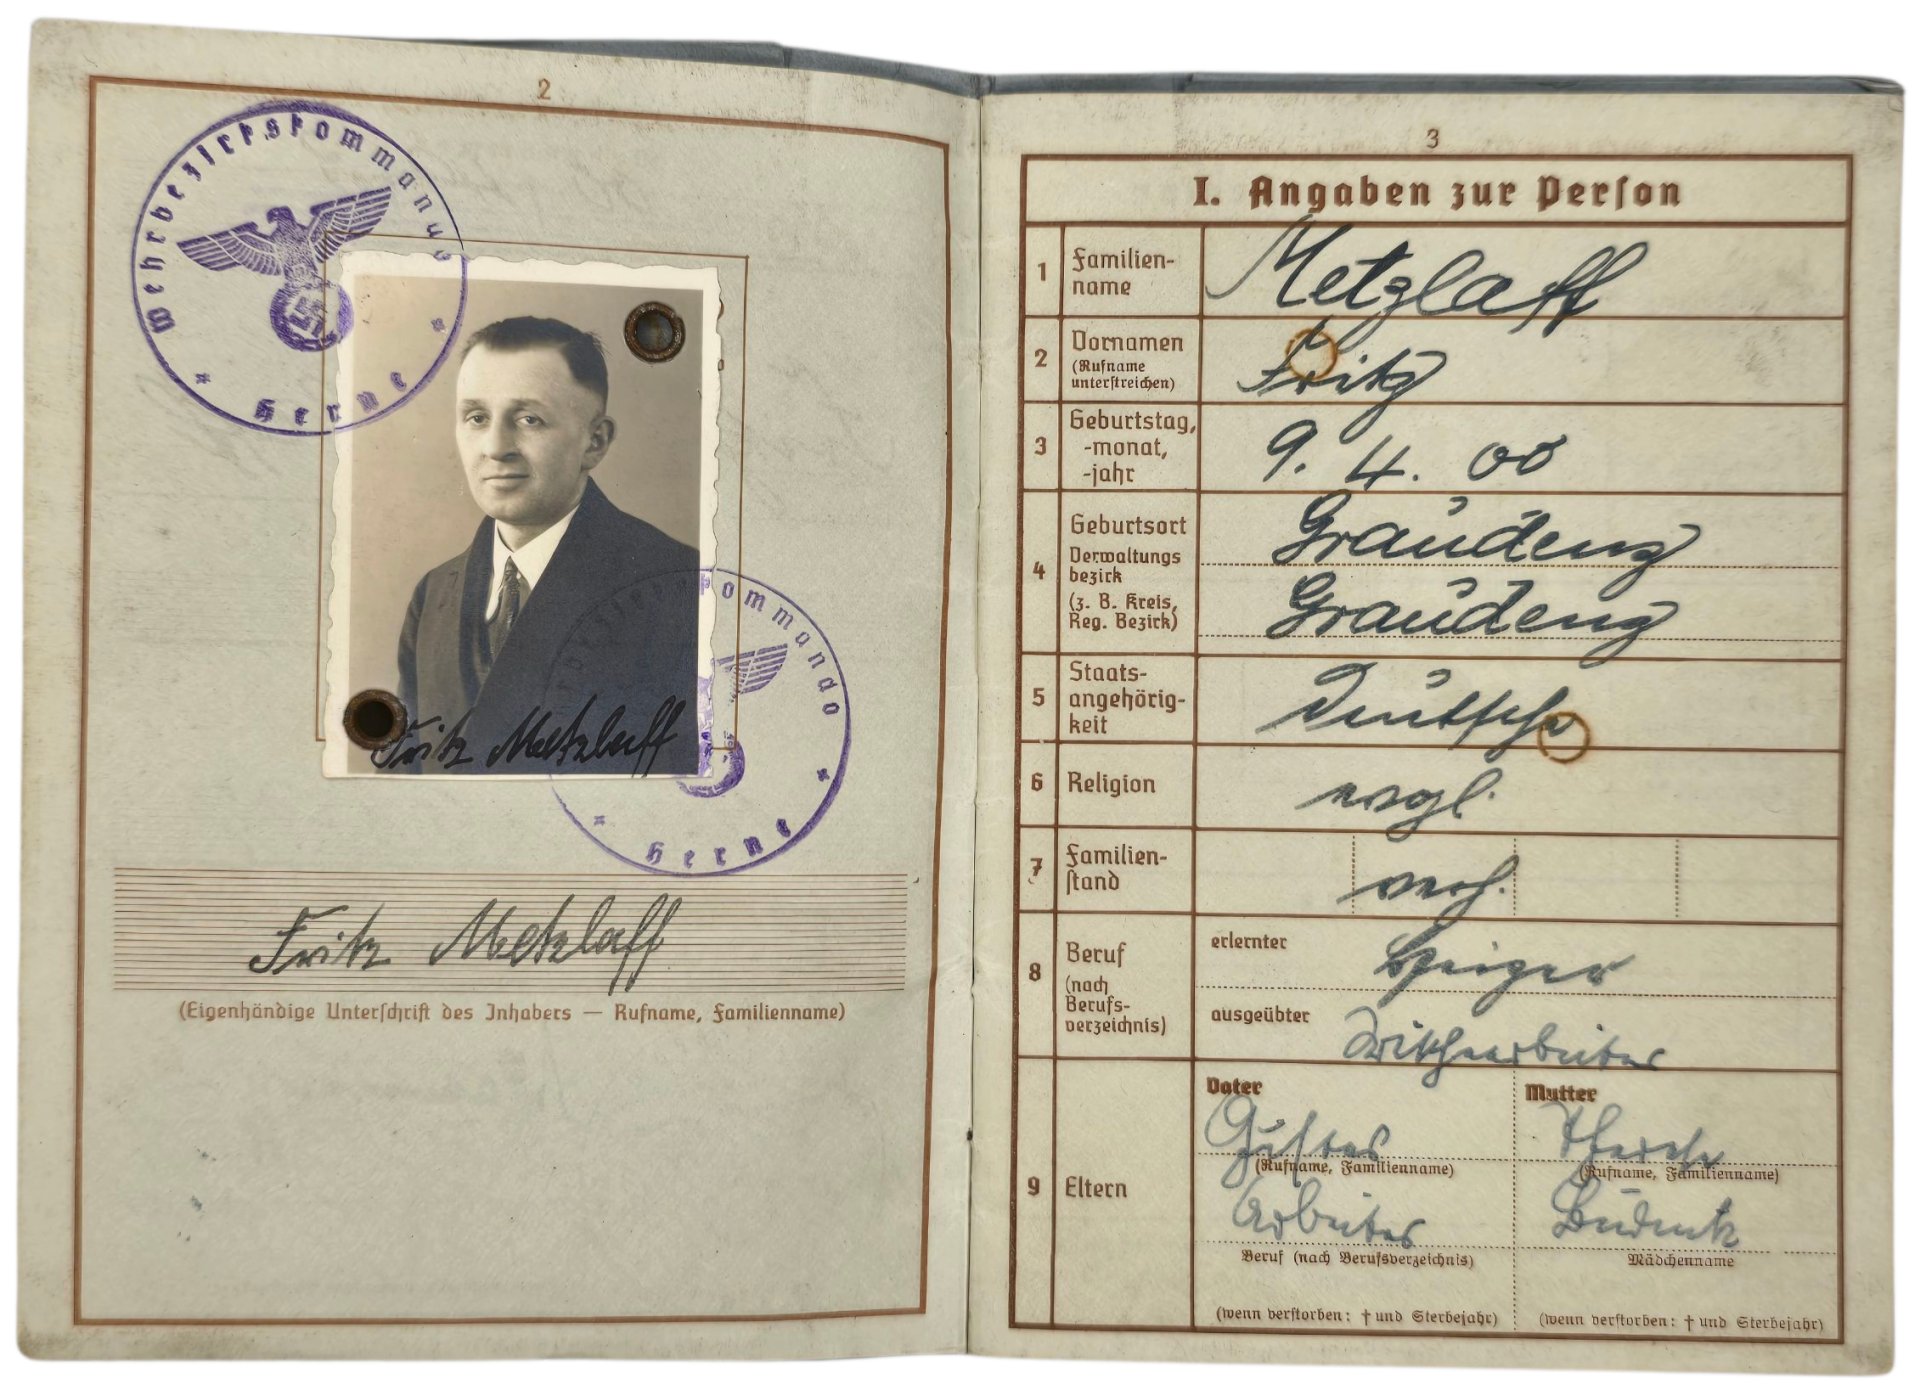 2
Wehrbezirkskommando
Herne
Fritz Metzlaff
kommando
Herne
Fritz Metzlaff
(Eigenhändige Unterſchrift des Inhabers — Rufname, Familienname)
3
I. Angaben zur Perſon
1 Familien-
name
Metzlaff
2 Vornamen
(Rufname
unterſtreichen)
Fritz
3 Geburtstag,
-monat,
-jahr
9. 4. 00
4 Geburtsort
Verwaltungs
bezirk
(z. B. Kreis,
Reg. Bezirk)
Graudenz
Graudenz
5 Staats-
angehörig-
keit
Deutsche
6 Religion
evgl.
7 Familien-
ſtand
verh.
8 Beruf
(nach
Berufs-
verzeichnis)
erlernter
Heizer
ausgeübter
9 Eltern
Vater
Gustav
(Rufname, Familienname)
Arbeiter
Beruf (nach Berufsverzeichnis)
(wenn verſtorben: † und Sterbejahr)
Mutter
Therese
(Rufname, Familienname)
Mädchenname
(wenn verſtorben: † und Sterbejahr)